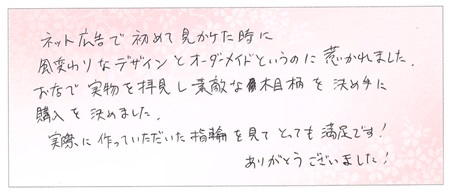 ネット広告で初めて見かけた時に
風変わりなデザインとオーダーメイドというのに惹かれました。
お店で実物を拝見し素敵な木目柄を決め手に
購入を決めました。
実際に作っていただいた指輪を見てとっても満足です!
ありがとうございました!